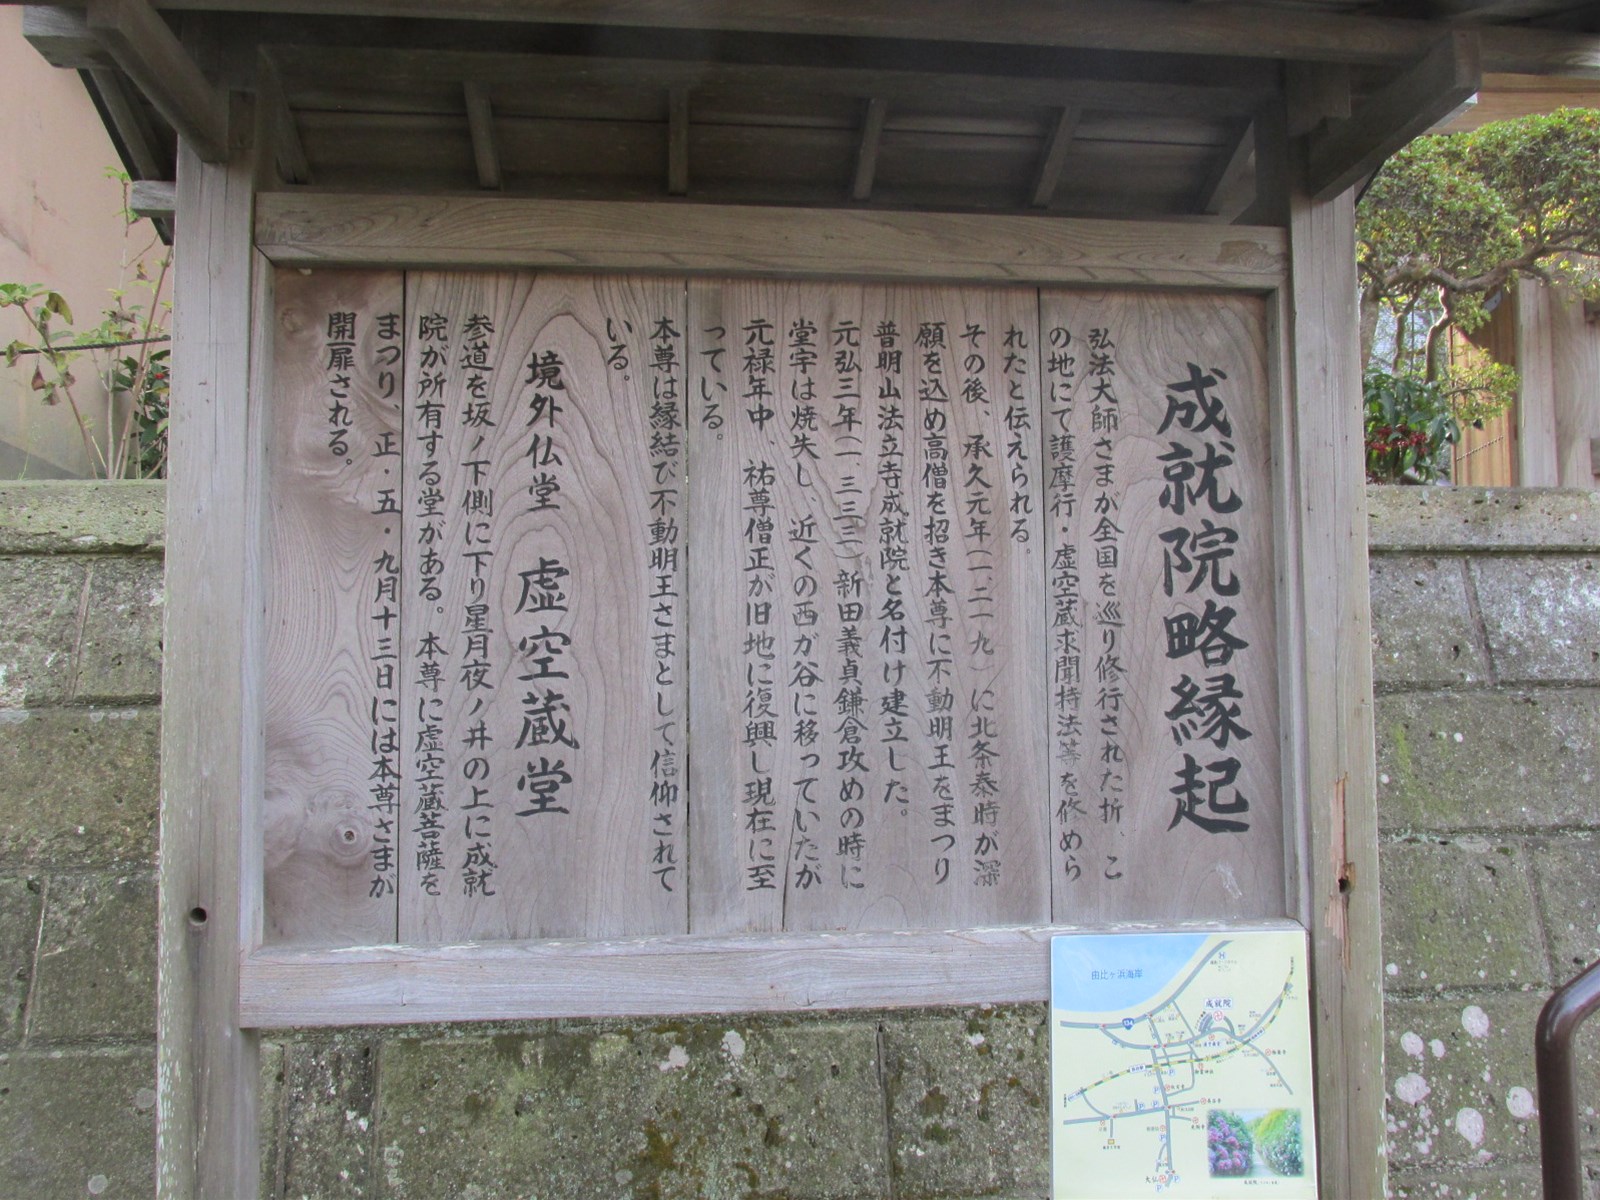 成就院略縁起
弘法大師さまが全国を巡り修行された折、こ
の地にて護摩行・虚空蔵求聞持法等を修めら
れたと伝えられる。
その後、承久元年(一、二一九)に北条泰時が深
願を込め高僧を招き本尊に不動明王をまつり
普明山法立寺成就院と名付け建立した。
元弘三年(一、三三三)新田義貞鎌倉攻めの時に
堂宇は焼失し、近くの西が谷に移っていたが
元禄年中、祐尊僧正が旧地に復興し現在に至
っている。
本尊は縁結び不動明王さまとして信仰されて
いる。
境外仏堂 虚空蔵堂
参道を坂ノ下側に下り星月夜ノ井の上に成就
院が所有する堂がある。本尊に虚空蔵菩薩を
まつり、正・五・九月十三日には本尊さまが
開扉される。
由比ヶ浜海岸
成就院
134